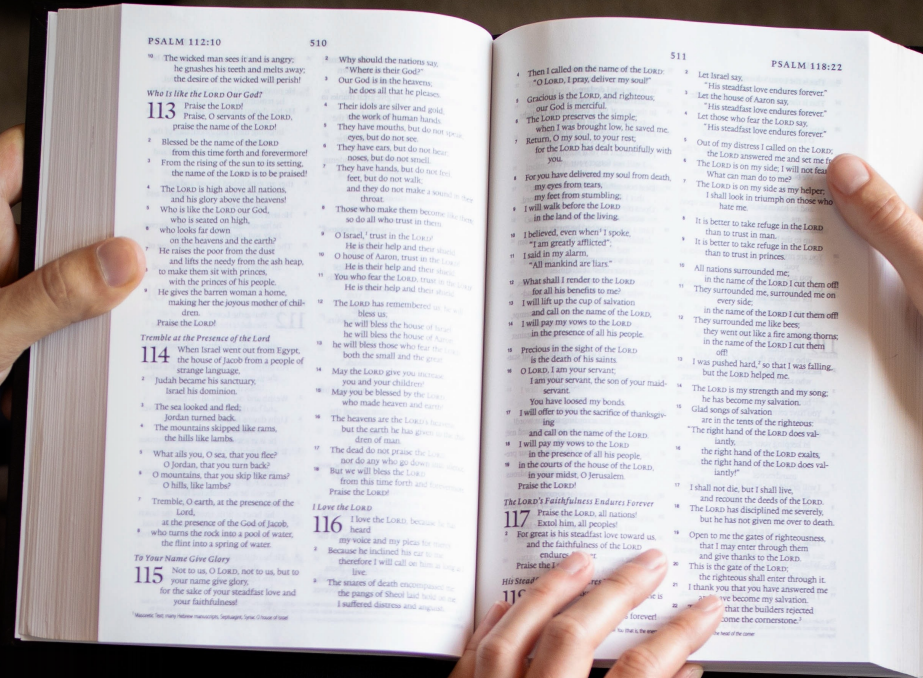 PSALM 112:10
510
10 The wicked man sees it and is angry;
he gnashes his teeth and melts away;
the desire of the wicked will perish!
Who Is like the LORD Our God?
113 Praise the LORD!
Praise, O servants of the LORD,
praise the name of the LORD!
2 Blessed be the name of the LORD
from this time forth and forevermore!
3 From the rising of the sun to its setting,
the name of the LORD is to be praised!
4 The LORD is high above all nations,
and his glory above the heavens!
5 Who is like the LORD our God,
who is seated on high,
6 who looks far down
on the heavens and the earth?
7 He raises the poor from the dust
and lifts the needy from the ash heap,
8 to make them sit with princes,
with the princes of his people.
9 He gives the barren woman a home,
making her the joyous mother of chil-
dren.
Praise the LORD!
Tremble at the Presence of the Lord
114 When Israel went out from Egypt,
the house of Jacob from a people of
strange language,
2 Judah became his sanctuary,
Israel his dominion.
3 The sea looked and fled;
Jordan turned back.
4 The mountains skipped like rams,
the hills like lambs.
5 What ails you, O sea, that you flee?
O Jordan, that you turn back?
6 O mountains, that you skip like rams?
O hills, like lambs?
7 Tremble, O earth, at the presence of the
Lord,
at the presence of the God of Jacob,
8 who turns the rock into a pool of water,
the flint into a spring of water.
To Your Name Give Glory
115 Not to us, O LORD, not to us, but to
your name give glory,
for the sake of your steadfast love and
your faithfulness!
2 Why should the nations say,
"Where is their God?"
3 Our God is in the heavens;
he does all that he pleases.
4 Their idols are silver and gold,
the work of human hands.
5 They have mouths, but do not speak;
eyes, but do not see.
6 They have ears, but do not hear;
noses, but do not smell.
7 They have hands, but do not feel;
feet, but do not walk;
and they do not make a sound in their
throat.
8 Those who make them become like them;
so do all who trust in them.
9 O Israel,¹ trust in the LORD!
He is their help and their shield.
10 O house of Aaron, trust in the LORD!
He is their help and their shield.
11 You who fear the LORD, trust in the
He is their help and their shield.
12 The LORD has remembered us; he will
bless us;
he will bless the house of Israel;
he will bless the house of Aaron;
13 he will bless those who fear the
both the small and the great.
14 May the LORD give you increase,
you and your children!
15 May you be blessed by the LORD,
who made heaven and earth!
16 The heavens are the LORD's heavens,
but the earth he has given to the
dren of man.
17 The dead do not praise the
nor do any who go down
18 But we will bless the LORD
from this time forth and
Praise the LORD!
I Love the LORD
116 I love the LORD, because he has
heard
my voice and my pleas for
2 Because he inclined his ear to me,
therefore I will call on him as long as I
live.
3 The snares of death encompassed me;
the pangs of Sheol laid hold on me;
I suffered distress and anguish.
511
PSALM 118:22
4 Then I called on the name of the LORD:
"O LORD, I pray, deliver my soul!"
5 Gracious is the LORD, and righteous;
our God is merciful.
6 The LORD preserves the simple;
when I was brought low, he saved me.
7 Return, O my soul, to your rest;
for the LORD has dealt bountifully with
you.
8 For you have delivered my soul from death,
my eyes from tears,
my feet from stumbling;
9 I will walk before the LORD
in the land of the living.
10 I believed, even when¹ I spoke,
"I am greatly afflicted";
11 I said in my alarm,
"All mankind are liars."
12 What shall I render to the LORD
for all his benefits to me?
13 I will lift up the cup of salvation
and call on the name of the LORD,
14 I will pay my vows to the LORD
in the presence of all his people.
15 Precious in the sight of the LORD
is the death of his saints.
16 O LORD, I am your servant;
I am your servant, the son of your maid-
servant.
You have loosed my bonds.
17 I will offer to you the sacrifice of thanksgiv-
ing
and call on the name of the LORD.
18 I will pay my vows to the LORD
in the presence of all his people,
19 in the courts of the house of the LORD,
in your midst, O Jerusalem.
Praise the LORD!
The LORD's Faithfulness Endures Forever
117 Praise the LORD, all nations!
Extol him, all peoples!
2 For great is his steadfast love toward us,
and the faithfulness of the LORD
endures
Praise the
His
Forever
is
forever!
2 Let Israel say,
"His steadfast love endures forever."
3 Let the house of Aaron say,
"His steadfast love endures forever."
4 Let those who fear the LORD say,
"His steadfast love endures forever."
5 Out of my distress I called on the LORD;
the LORD answered me and set me
6 The LORD is on my side; I will not fear.
What can man do to me?
7 The LORD is on my side as my helper;
I shall look in triumph on those who
hate me.
8 It is better to take refuge in the LORD
than to trust in man.
9 It is better to take refuge in the LORD
than to trust in princes.
10 All nations surrounded me;
in the name of the LORD I cut them off!
11 They surrounded me, surrounded me on
every side;
in the name of the LORD I cut them off!
12 They surrounded me like bees;
they went out like a fire among thorns;
in the name of the LORD I cut them
off!
13 I was pushed hard,² so that I was falling,
but the LORD helped me.
14 The LORD is my strength and my song;
he has become my salvation.
15 Glad songs of salvation
are in the tents of the righteous:
"The right hand of the LORD does val-
iantly,
16 the right hand of the LORD exalts,
the right hand of the LORD does val-
iantly!"
17 I shall not die, but I shall live,
and recount the deeds of the LORD.
18 The LORD has disciplined me severely,
but he has not given me over to death.
19 Open to me the gates of righteousness,
that I may enter through them
and give thanks to the LORD.
20 This is the gate of the LORD;
the righteous shall enter through it.
21 I thank you that you have answered me
have become my salvation.
22 that the builders rejected
come the cornerstone.³